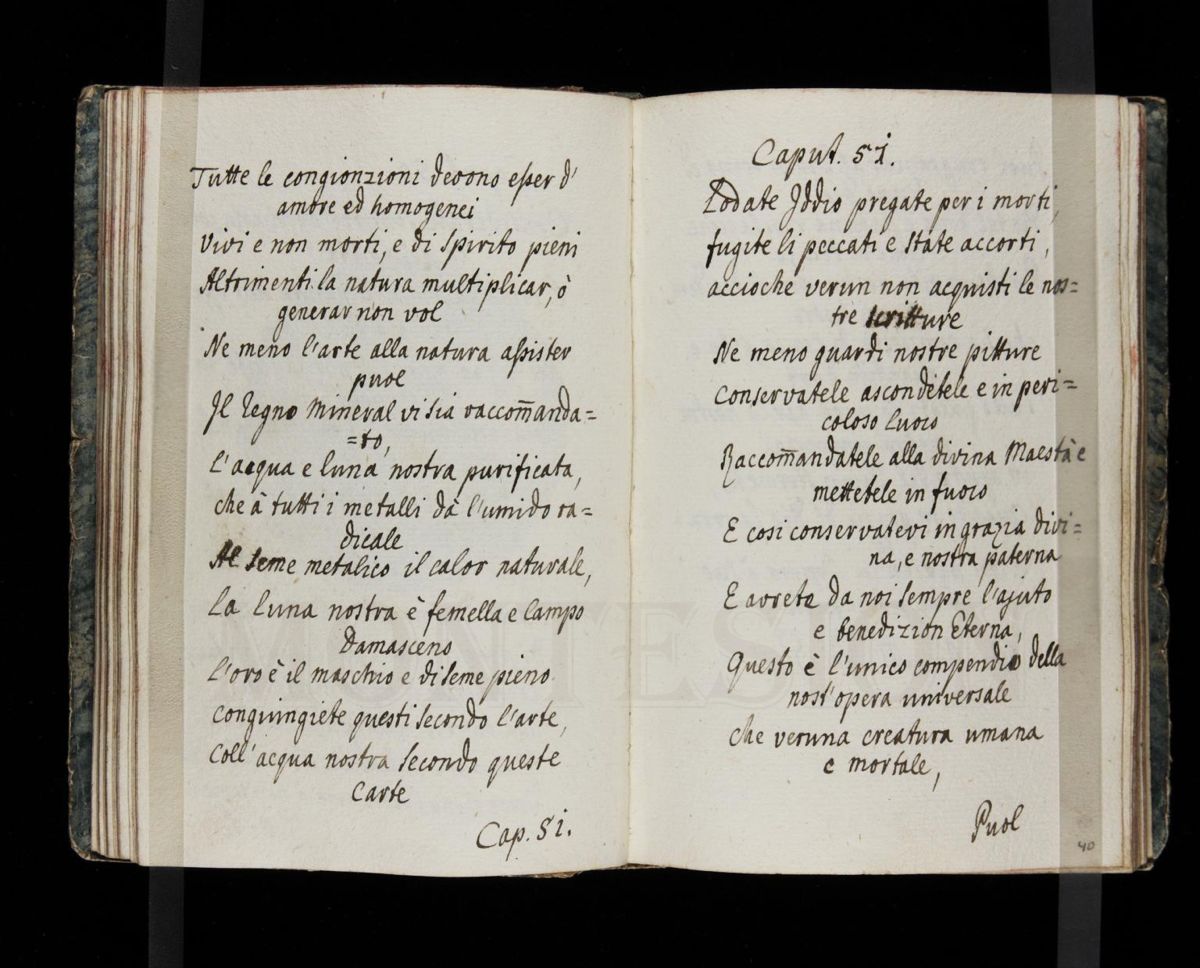 Tutte le congionzioni devono esser d'
amore ed homogenei
Vivi e non morti, e di Spirito pieni
Altrimenti la natura multiplicar, ò
generar non vol
Ne meno l'arte alla natura assister
puol
Il Regno Mineral vi sia raccom̄anda=
=to,
L'acqua e luna nostra purificata,
che à tutti i metalli dà l'umido ra=
dicale
Al Seme metalico il calor naturale,
La Luna nostra è femella e Campo
Damasceno
L'oro è il maschio e di seme pieno
Congiungiete questi secondo l'arte,
Coll'acqua nostra secondo queste
Carte
Cap. 51.
Caput. 51.
Lodate Iddio pregate per i morti,
fugite li peccati e State accorti,
accioche verun non acquisti le nos=
tre scritture
Ne meno guardi nostre pitture
Conservatele ascondetele e in peri=
coloso Luoco
Raccom̄andatele alla divina Maestà e
mettetele in fuoco
E cosi conservatevi in grazia divi=
na, e nostra paterna
E avrete da noi sempre l'ajuto
e benedizion Eterna,
Questo è l'unico compendio della
nost'opera universale
Che veruna creatura umana
e mortale,
Puol
40